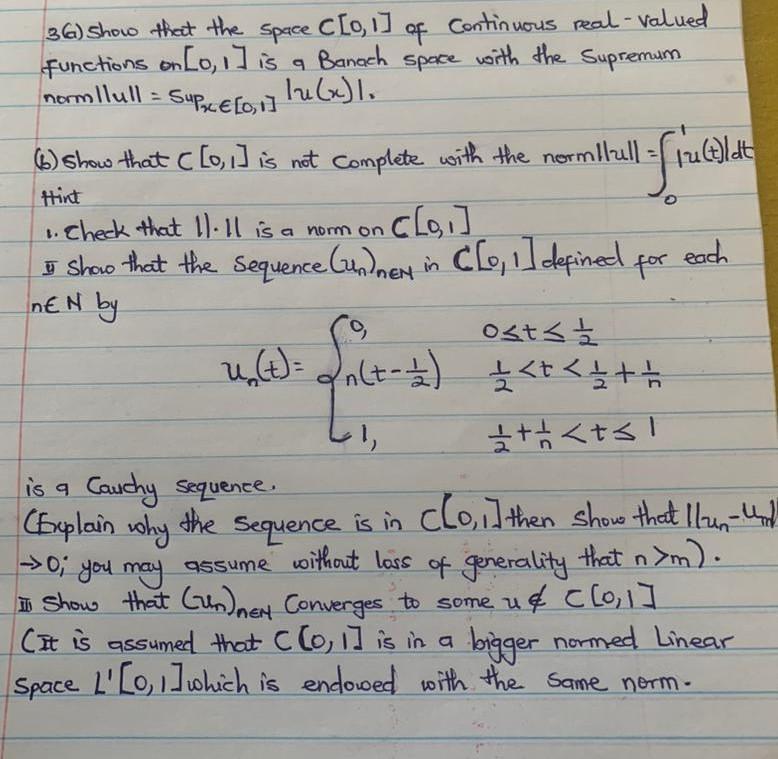 3(a) Show that the space C[0,1] of Continuous real-valued
functions on [0,1] is a Banach space with the Supremum
norm ||u|| = Sup x∈[0,1] |u(x)|.
(b) Show that C[0,1] is not Complete with the norm ||u|| = ∫₀¹ |u(t)|dt
Hint
1. Check that ||·|| is a norm on C[0,1]
II Show that the Sequence (uₙ)n∈N in C[0,1] defined for each
n∈N by
uₙ(t) = { 0, 0≤t≤ 1/2
n(t-1/2) 1/2 <t< 1/2 + 1/n
1, 1/2 + 1/n <t≤ 1
is a Cauchy sequence.
(Explain why the Sequence is in C[0,1] then show that ||uₙ-uₘ||
→0; you may assume without loss of generality that n>m).
III Show that (uₙ)n∈N Converges to some u ∉ C[0,1]
(It is assumed that C[0,1] is in a bigger normed Linear
Space L'[0,1] which is endowed with the same norm.